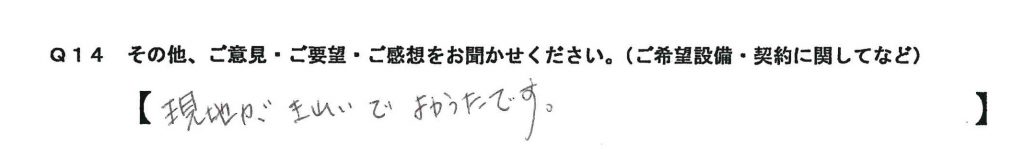 Q14 その他、ご意見・ご要望・ご感想をお聞かせください。（ご希望設備・契約に関してなど）
【 現地が でよかったです。 】